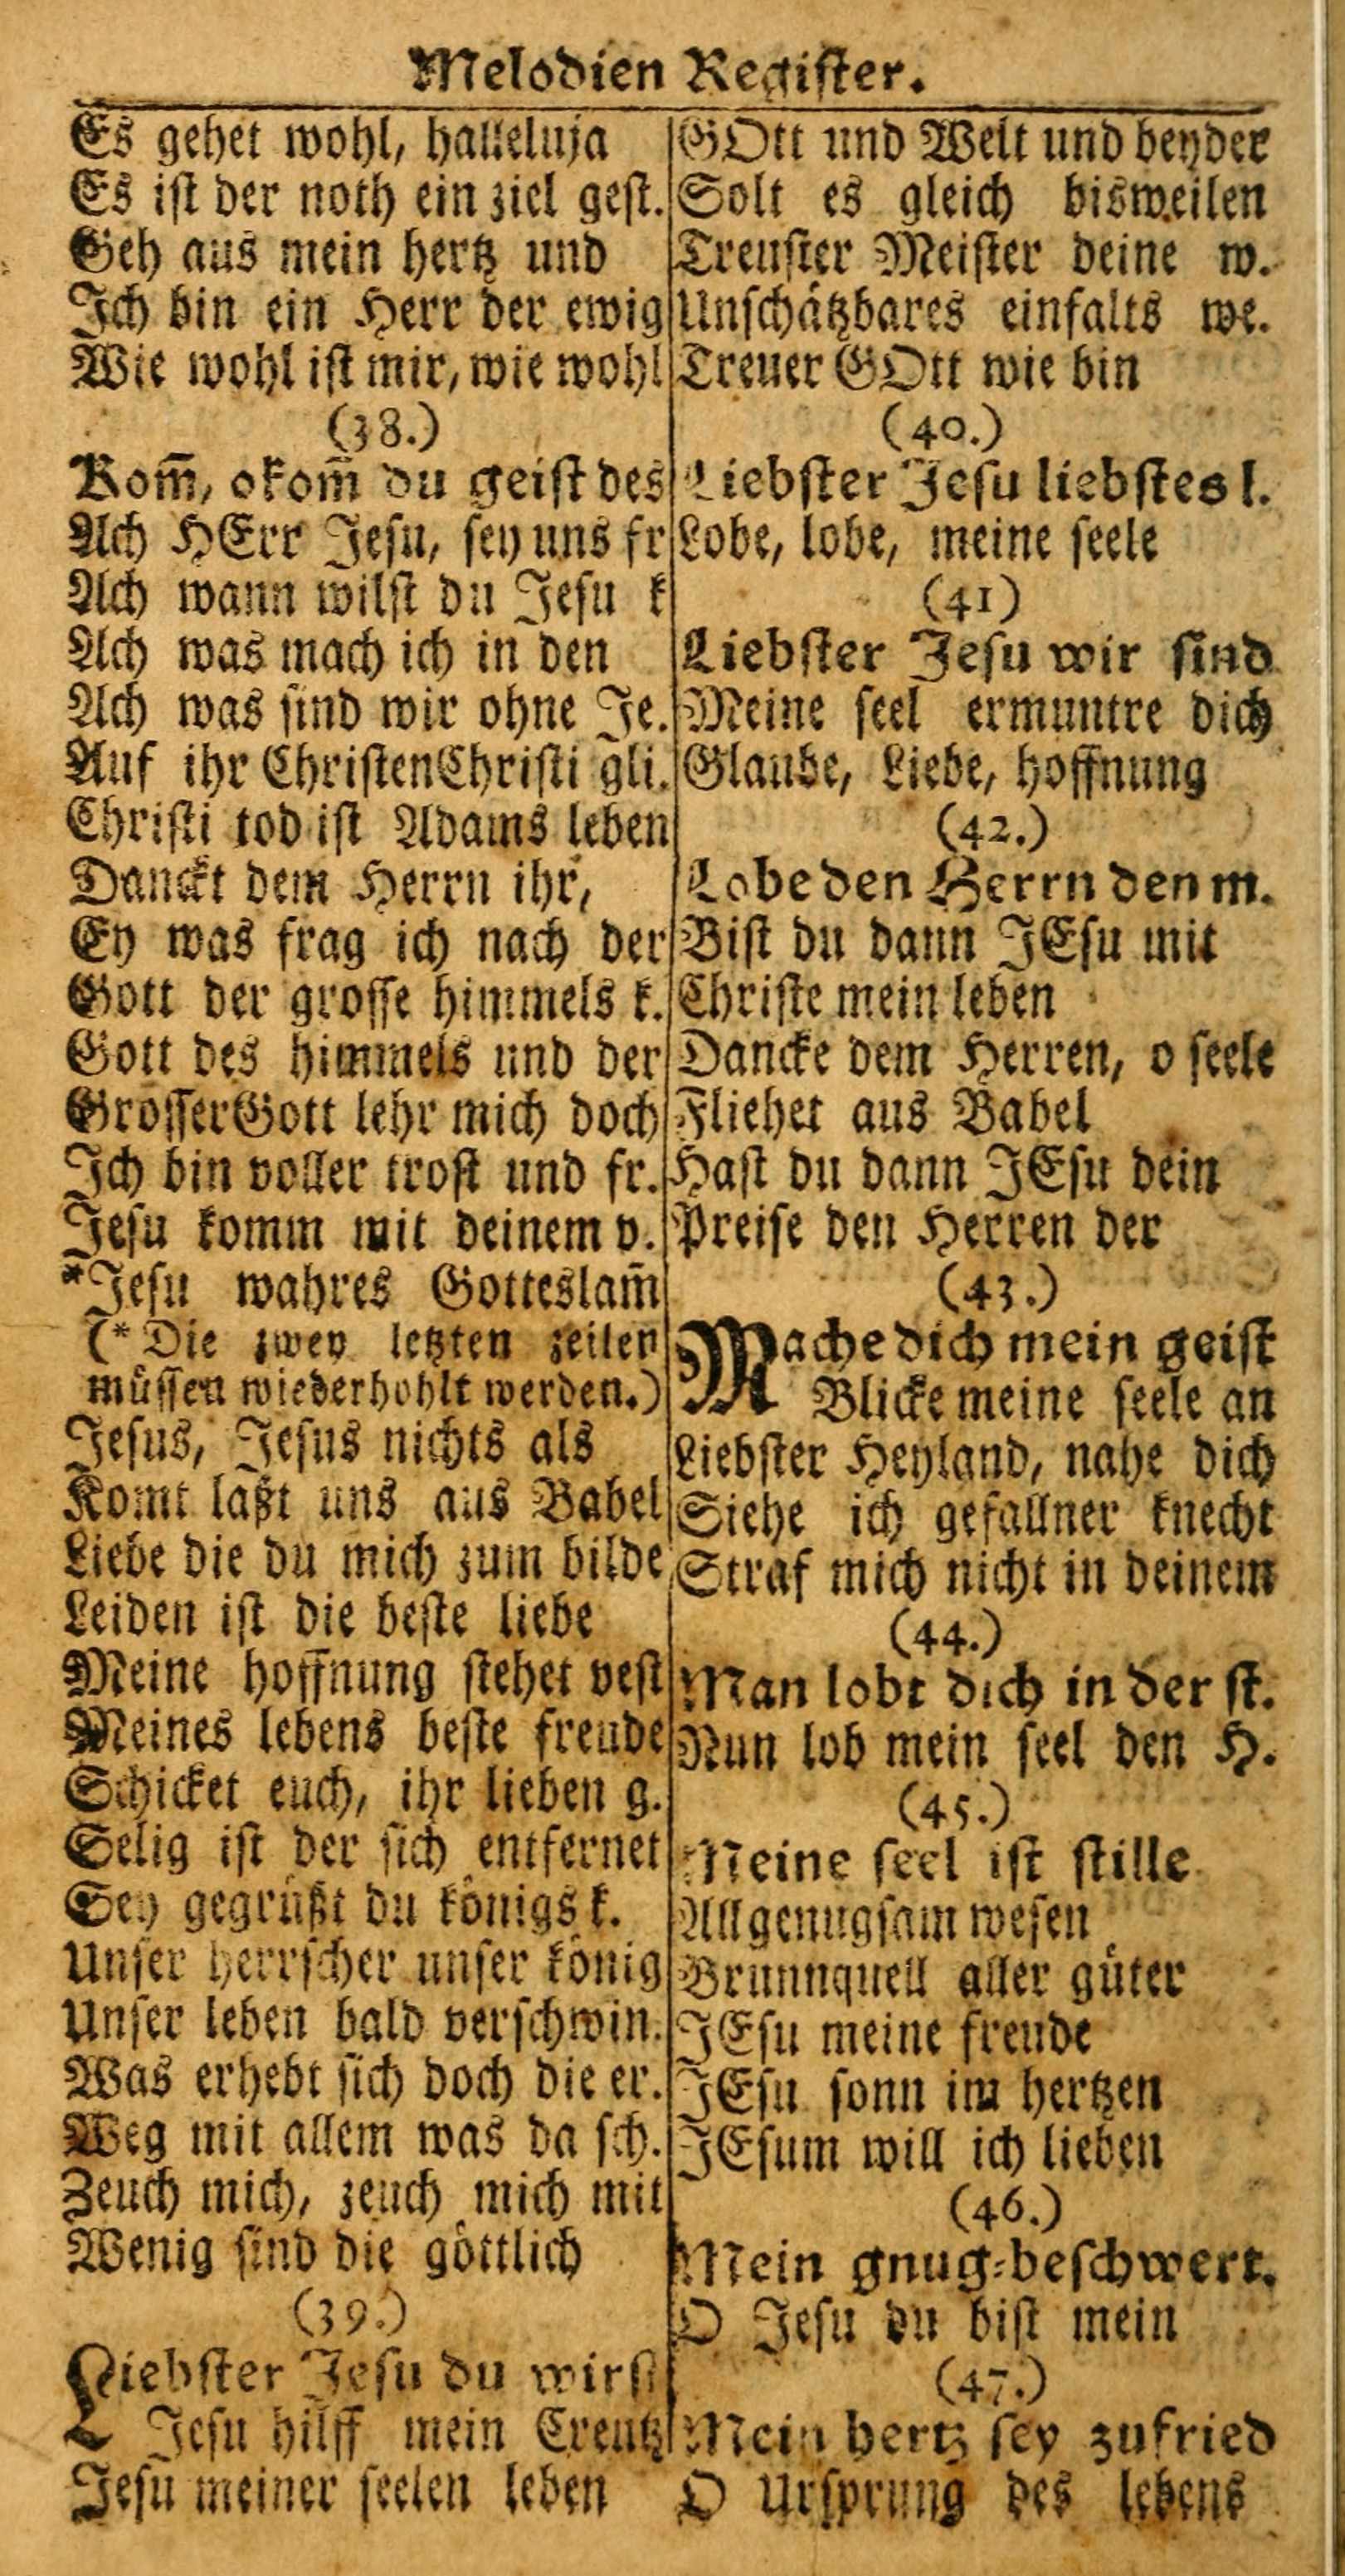 Melodien Register.
Es gehet wohl, halleluja
Es ist der noth ein ziel gest.
Geh aus mein hertz und
Ich bin ein Herr der ewig
Wie wohl ist mir, wie wohl
(38.)
Kom̄, o kom̄ du geist des
Ach HErr Jesu, sey uns fr
Ach wann wilst du Jesu k
Ach was mach ich in den
Ach was sind wir ohne Je.
Auf ihr Christen Christi gli.
Christi tod ist Adams leben
Danckt dem Herrn ihr,
Ey was frag ich nach der
Gott der grosse himmels k.
Gott des himmels und der
Grosser Gott lehr mich doch
Ich bin voller trost und fr.
Jesu komm mit deinem v.
*Jesu wahres Gotteslam̄
(* Die zwey letzten zeilen
müssen wiederhohlt werden.)
Jesus, Jesus nichts als
Komt laßt uns aus Babel
Liebe die du mich zum bilde
Leiden ist die beste liebe
Meine hoffnung stehet vest
Meines lebens beste freude
Schicket euch, ihr lieben g.
Selig ist der sich entfernet
Sey gegrüßt du königs k.
Unser herrscher unser könig
Unser leben bald verschwin.
Was erhebt sich doch die er.
Weg mit allem was da sch.
Zeuch mich, zeuch mich mit
Wenig sind die göttlich
(39.)
Liebster Jesu du wirst
Jesu hilff mein Creutz
Jesu meiner seelen leben
GOtt und Welt und beyder
Solt es gleich bisweilen
Treuster Meister deine w.
Unschätzbares einfalts we.
Treuer GOtt wie bin
(40.)
Liebster Jesu liebstes l.
Lobe, lobe, meine seele
(41)
Liebster Jesu wir sind
Meine seel ermuntre dich
Glaube, Liebe, hoffnung
(42.)
Lobe den Herrn den m.
Bist du dann JEsu mit
Christe mein leben
Dancke dem Herren, o seele
Fliehet aus Babel
Hast du dann JEsu dein
Preise den Herren der
(43.)
Mache dich mein geist
Blicke meine seele an
Liebster Heyland, nahe dich
Siehe ich gefallner knecht
Straf mich nicht in deinem
(44.)
Man lobt dich in der st.
Nun lob mein seel den H.
(45.)
Meine seel ist stille
Allgenugsam wesen
Brunnquell aller güter
JEsu meine freude
JEsu sonn im hertzen
JEsum will ich lieben
(46.)
Mein gnug-beschwert.
O Jesu du bist mein
(47.)
Mein hertz sey zufried
O Ursprung des lebens